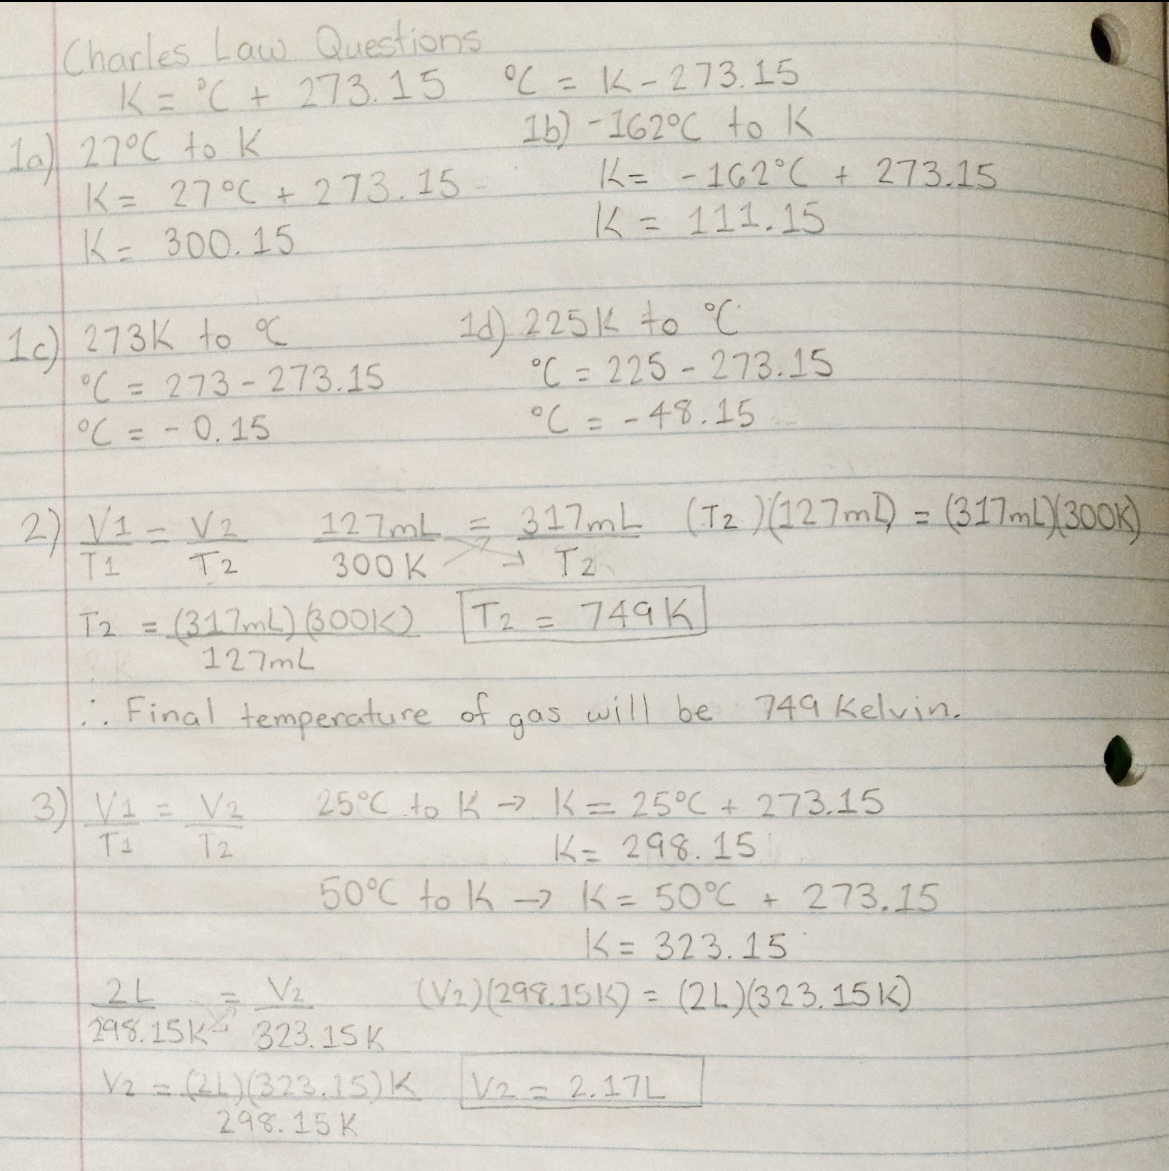 Charles Law Questions
K = °C + 273.15 °C = K - 273.15
1a) 27°C to K 1b) -162°C to K
K = 27°C + 273.15 K = -162°C + 273.15
K = 300.15 K = 111.15
1c) 273K to °C 1d) 225K to °C
°C = 273 - 273.15 °C = 225 - 273.15
°C = - 0.15 °C = - 48.15
2) V1/T1 = V2/T2 127mL/300K = 317mL/T2 (T2)(127mL) = (317mL)(300K)
T2 = (317mL)(300K)/127mL T2 = 749K
∴ Final temperature of gas will be 749 Kelvin.
3) V1/T1 = V2/T2 25°C to K → K = 25°C + 273.15
K = 298.15
50°C to K → K = 50°C + 273.15
K = 323.15
2L/298.15K = V2/323.15K (V2)(298.15K) = (2L)(323.15K)
V2 = (2L)(323.15)K/298.15K V2 = 2.17L